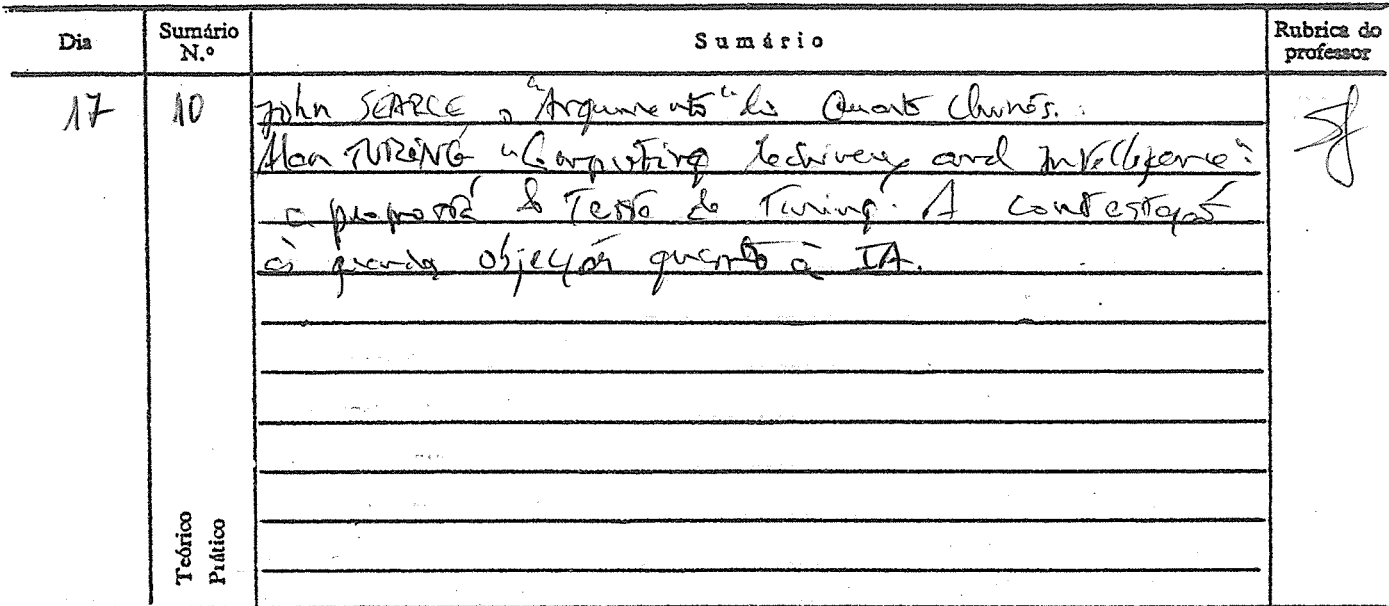 Dia Sumário N.º Sumário Rubrica do professor
17 10 John SEARLE, o "Argumento" do Quarto Chinês.
Alan TURING "Computing Machinery and Intelligence":
a proposta do Teste de Turing. A contestação
às grandes objeções quanto à IA.
Teórico
Prático